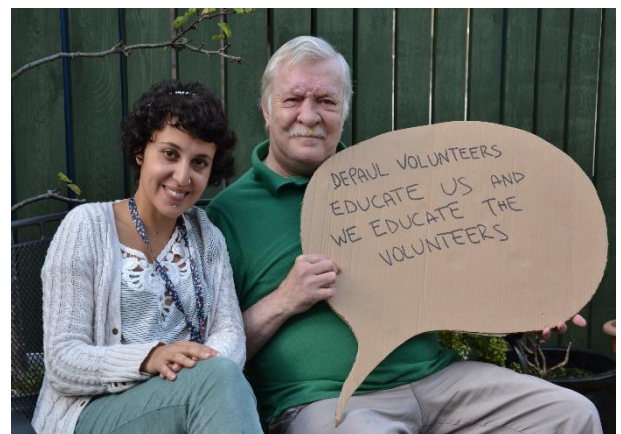 DEPAUL VOLUNTEERS
EDUCATE US AND
WE EDUCATE THE
VOLUNTEERS